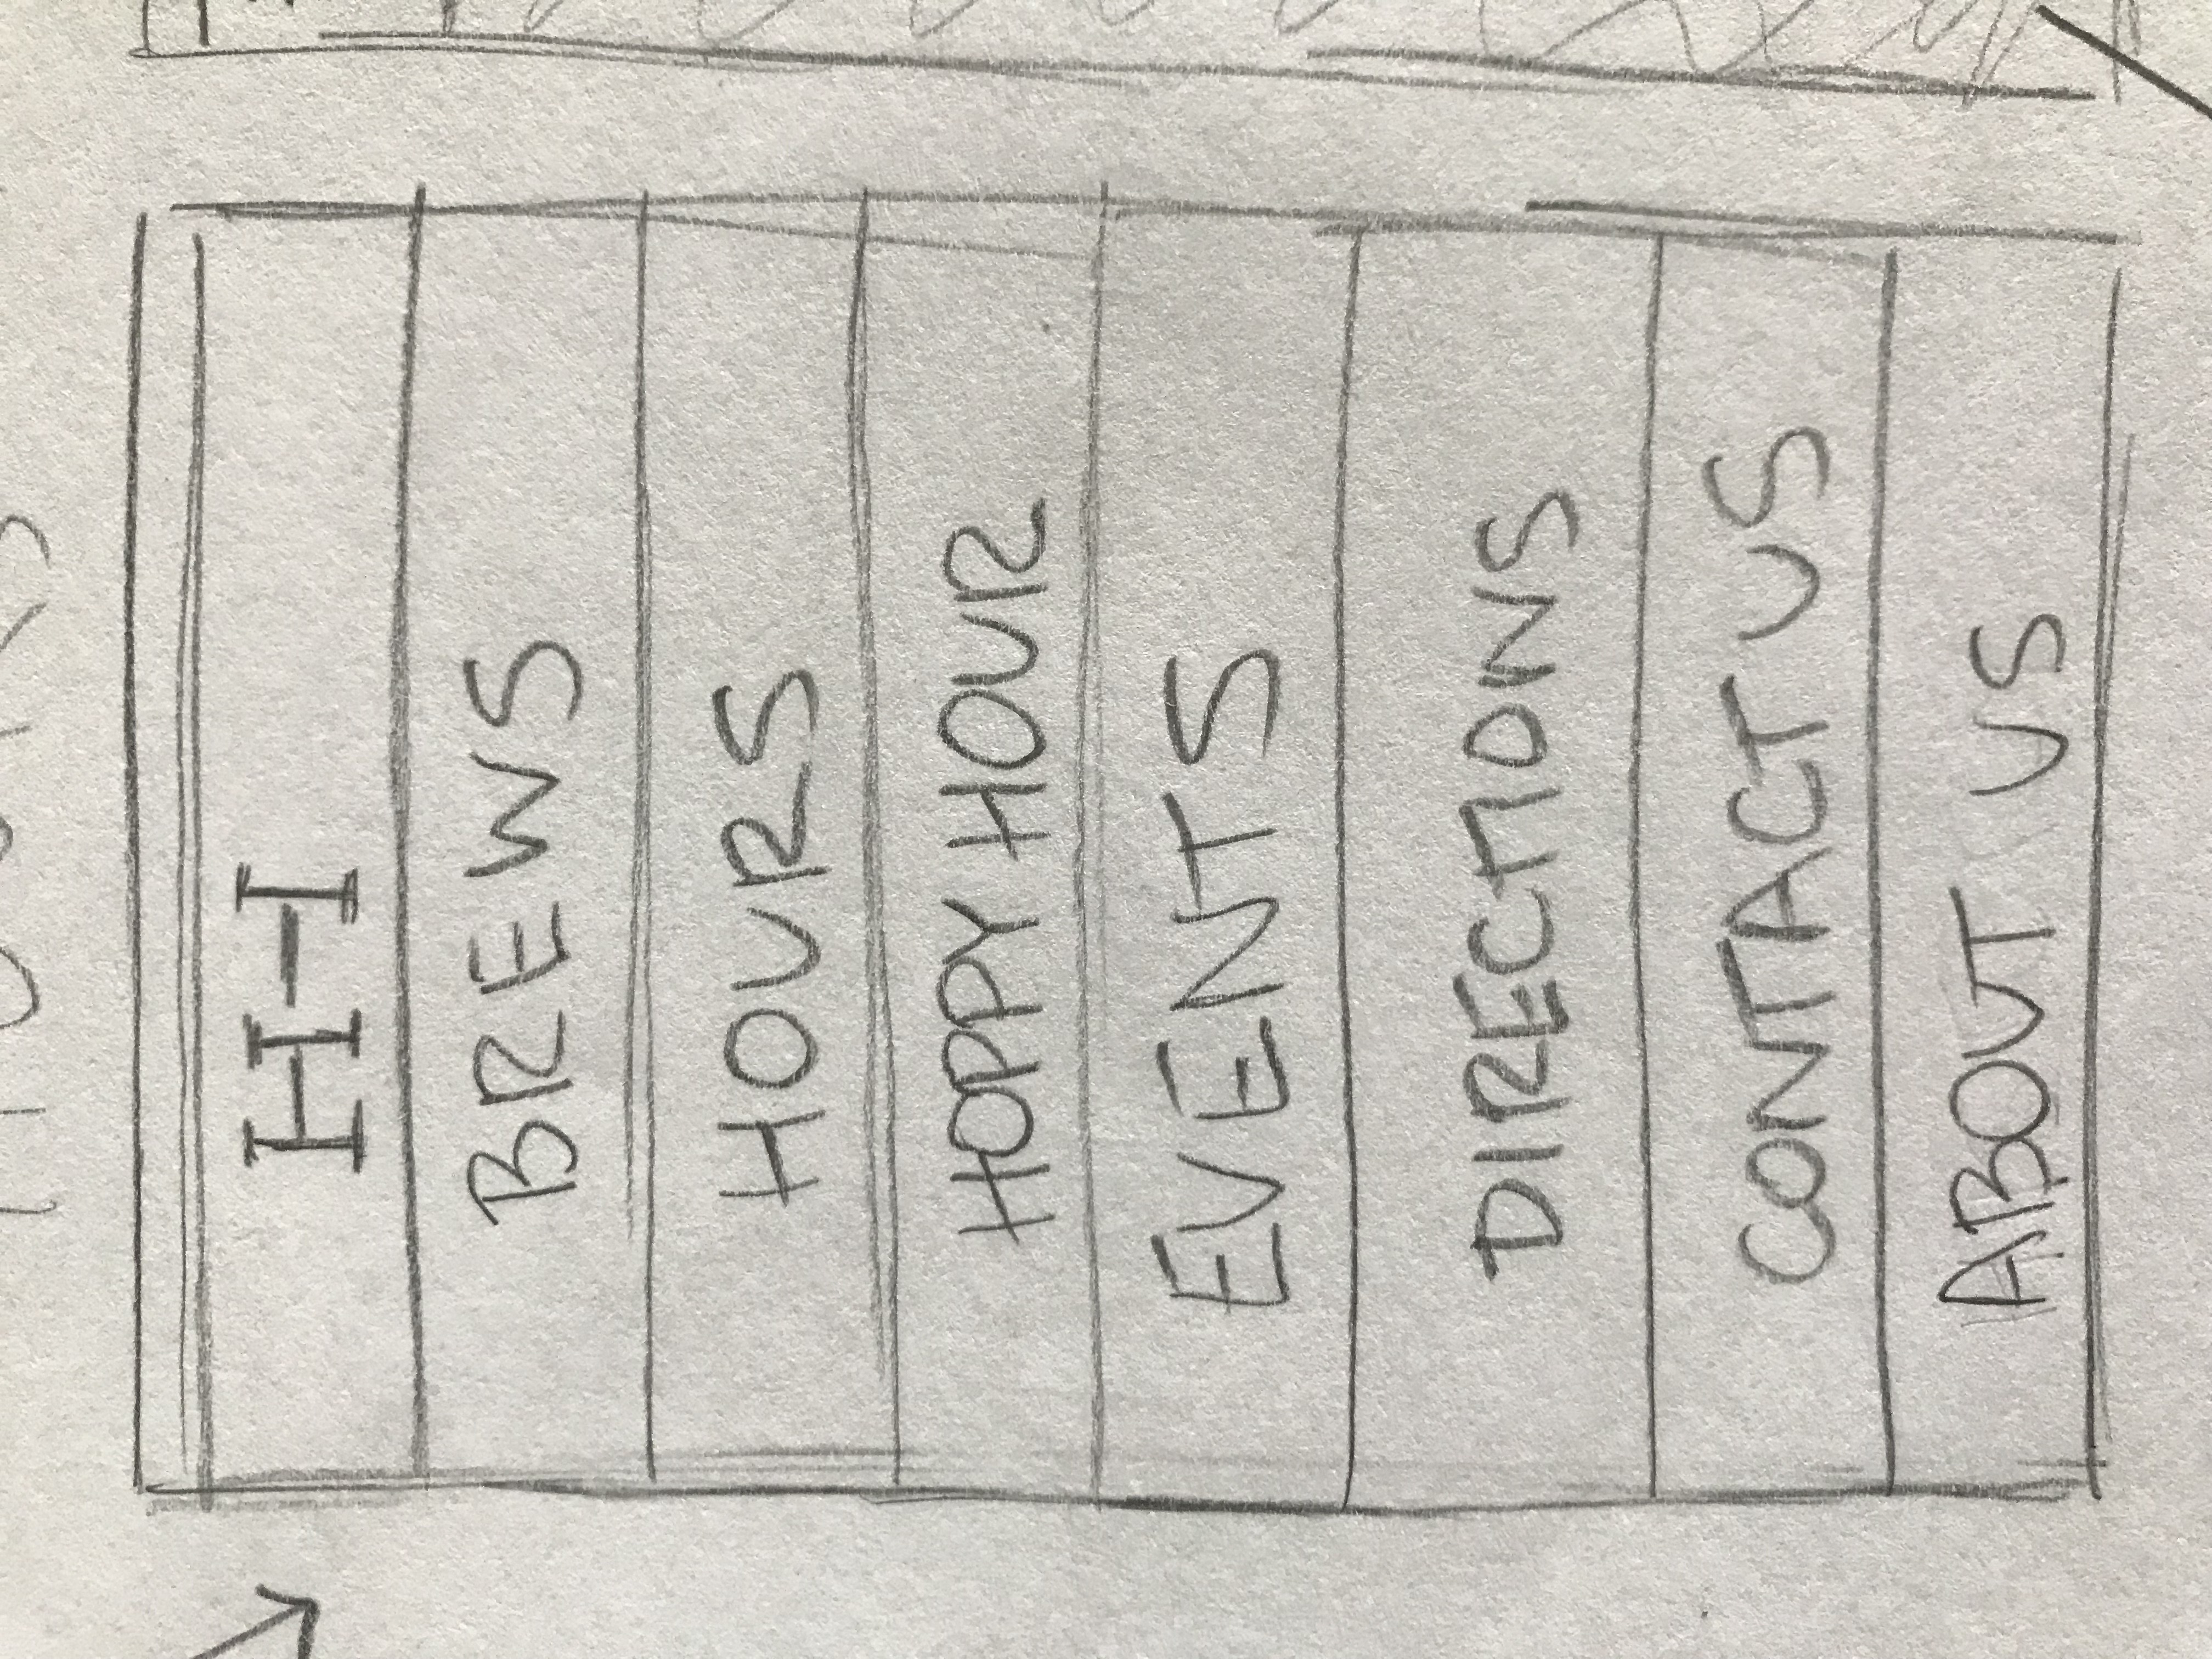 HOURS
H-I
BREWS
HOURS
HOPPY HOUR
EVENTS
DIRECTIONS
CONTACT US
ABOUT US